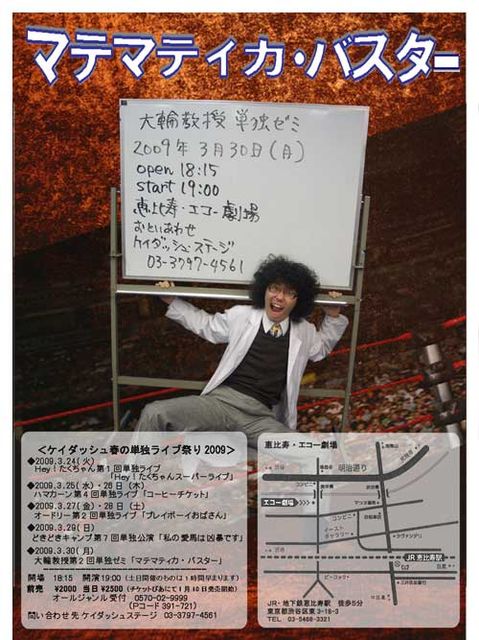 マテマティカ・バスター
大輪教授 単独ゼミ
2009年3月30日(月)
open 18:15
start 19:00
恵比寿・エコー劇場
おといあわせ
ケイダッシュ・ステージ
03-3797-4561
＜ケイダッシュ春の単独ライブ祭り2009＞
◆2009.3.24(火)
Hey!たくちゃん第1回単独ライブ
「Hey!たくちゃんスーパーライブ」
◆2009.3.25(水)・26日(木)
ハマカーン第4回単独ライブ「コーヒーチケット」
◆2009.3.27(金)・28日(土)
オードリー第2回単独ライブ「プレイボーイおばさん」
◆2009.3.29(日)
どきどきキャンプ第7回単独公演「私の愛馬は凶暴です」
◆2009.3.30(月)
大輪教授第2回単独ゼミ「マテマティカ・バスター」
開場 18:15 開演19:00(土日開催のものは1時間早まります)
前売 ¥2000 当日¥2500(チケットぴあにて1月30日発売開始)
オールジャンル受付 0570-02-9999
(Pコード391-721)
問い合わせ先 ケイダッシュステージ 03-3797-4561
恵比寿・エコー劇場
明治通り
コンビニ
エコー劇場
コンビニ
イースト
ギャラリー
JR 恵比寿駅
JR・地下鉄恵比寿駅 徒歩5分
東京都渋谷区東3-18-3
TEL 03-5466-3321